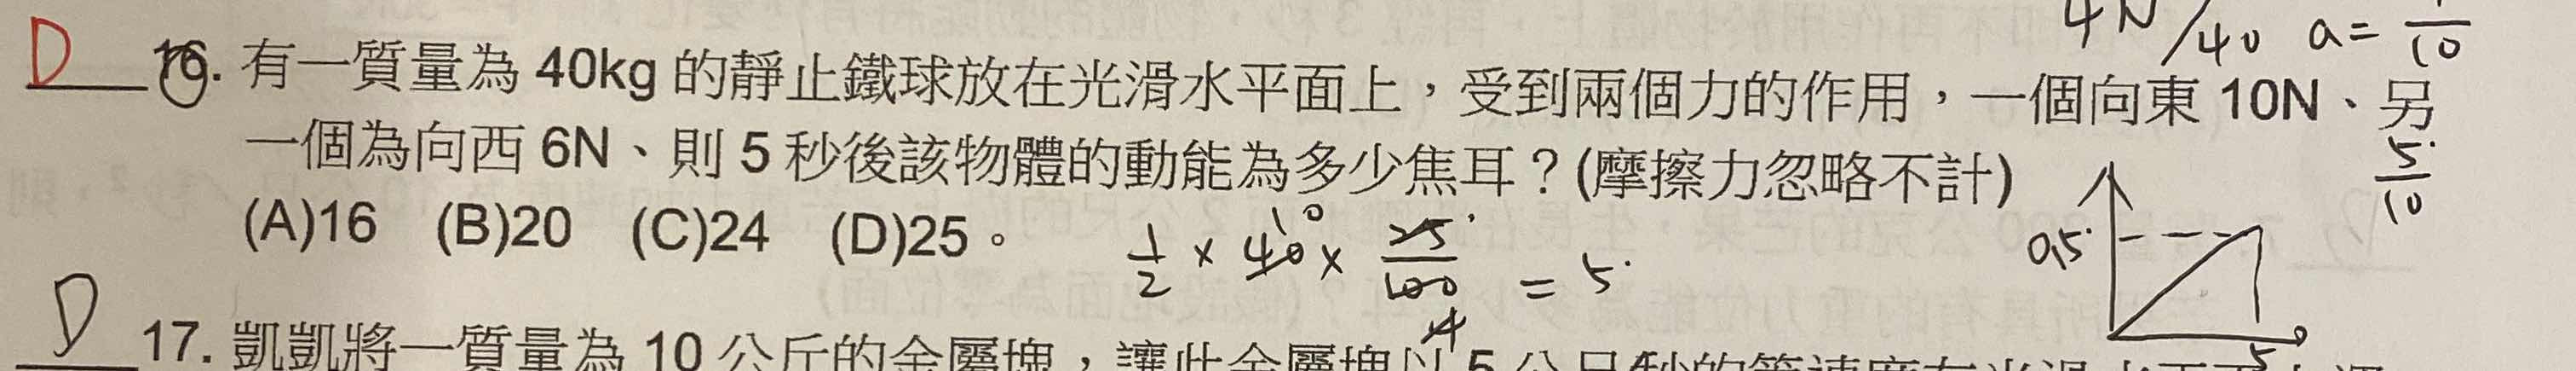 4N/40 a=1/10
D 16. 有一質量為 40kg 的靜止鐵球放在光滑水平面上，受到兩個力的作用，一個向東 10N、另
一個為向西 6N、則 5 秒後該物體的動能為多少焦耳？(摩擦力忽略不計)
5/10
(A)16 (B)20 (C)24 (D)25。
1/2 × 40 × 25/100 = 5
10
4
0.5
5
D 17. 凱凱將一質量為 10 公斤的金屬塊，讓此金屬塊以 5 公尺/秒的等速度在光滑水平面上